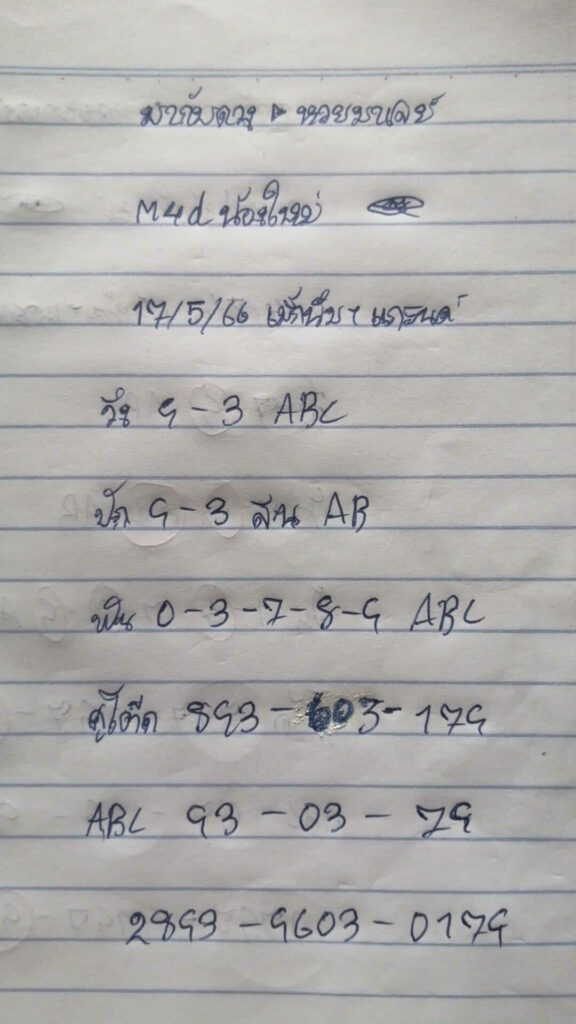 มากับดวง ▶ หวยมาเลย์
M4d น้องใหม่
17/5/66 แกรนด์
วิ่ง 9-3 ABC
ปัก 9-3 สน AB
ฟัน 0-3-7-8-9 ABC
คู่โต๊ด 893-603-179
ABC 93-03-79
2893-9603-0179